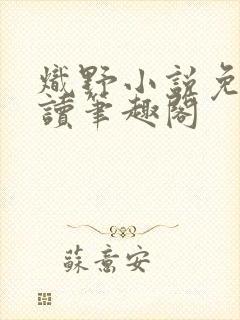 熾野小説免
讀筆趣閣
蘇意安